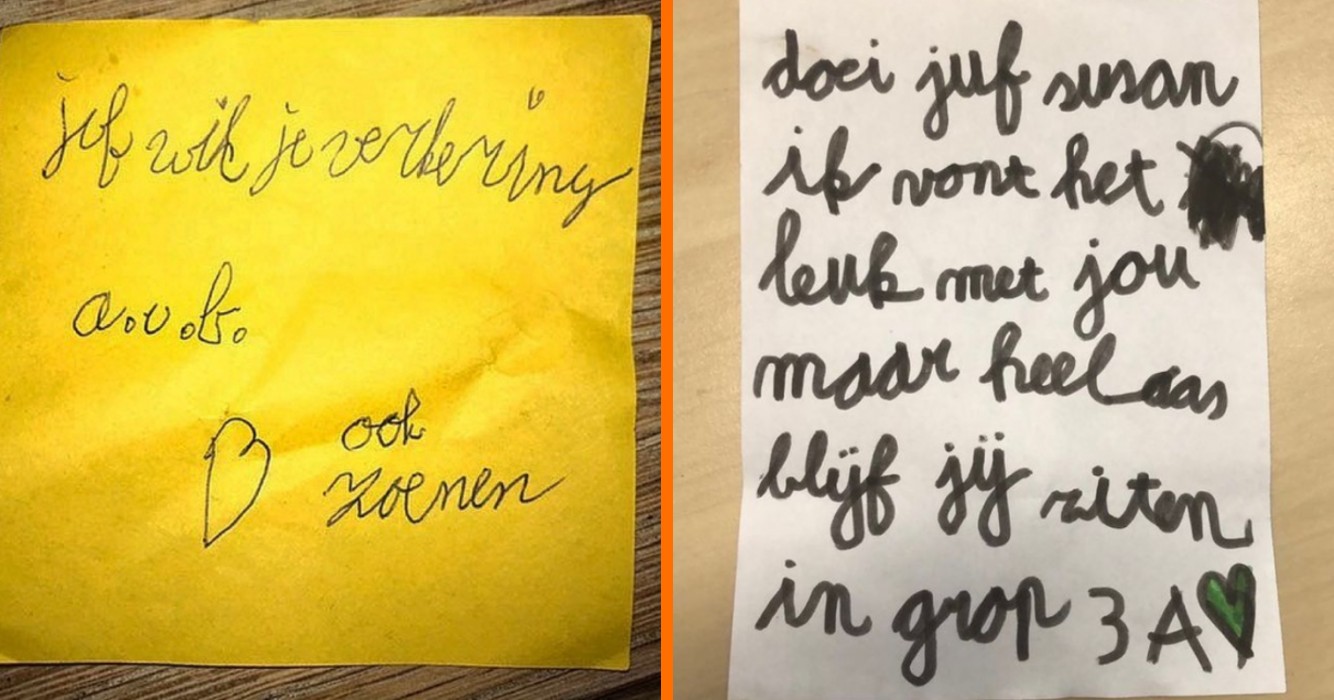 juf wil je verkering
a.u.b.
ook
zoenen
doei juf susan
ik vont het
leuk met jou
maar heel aas
blijf jij ziten
in grop 3A